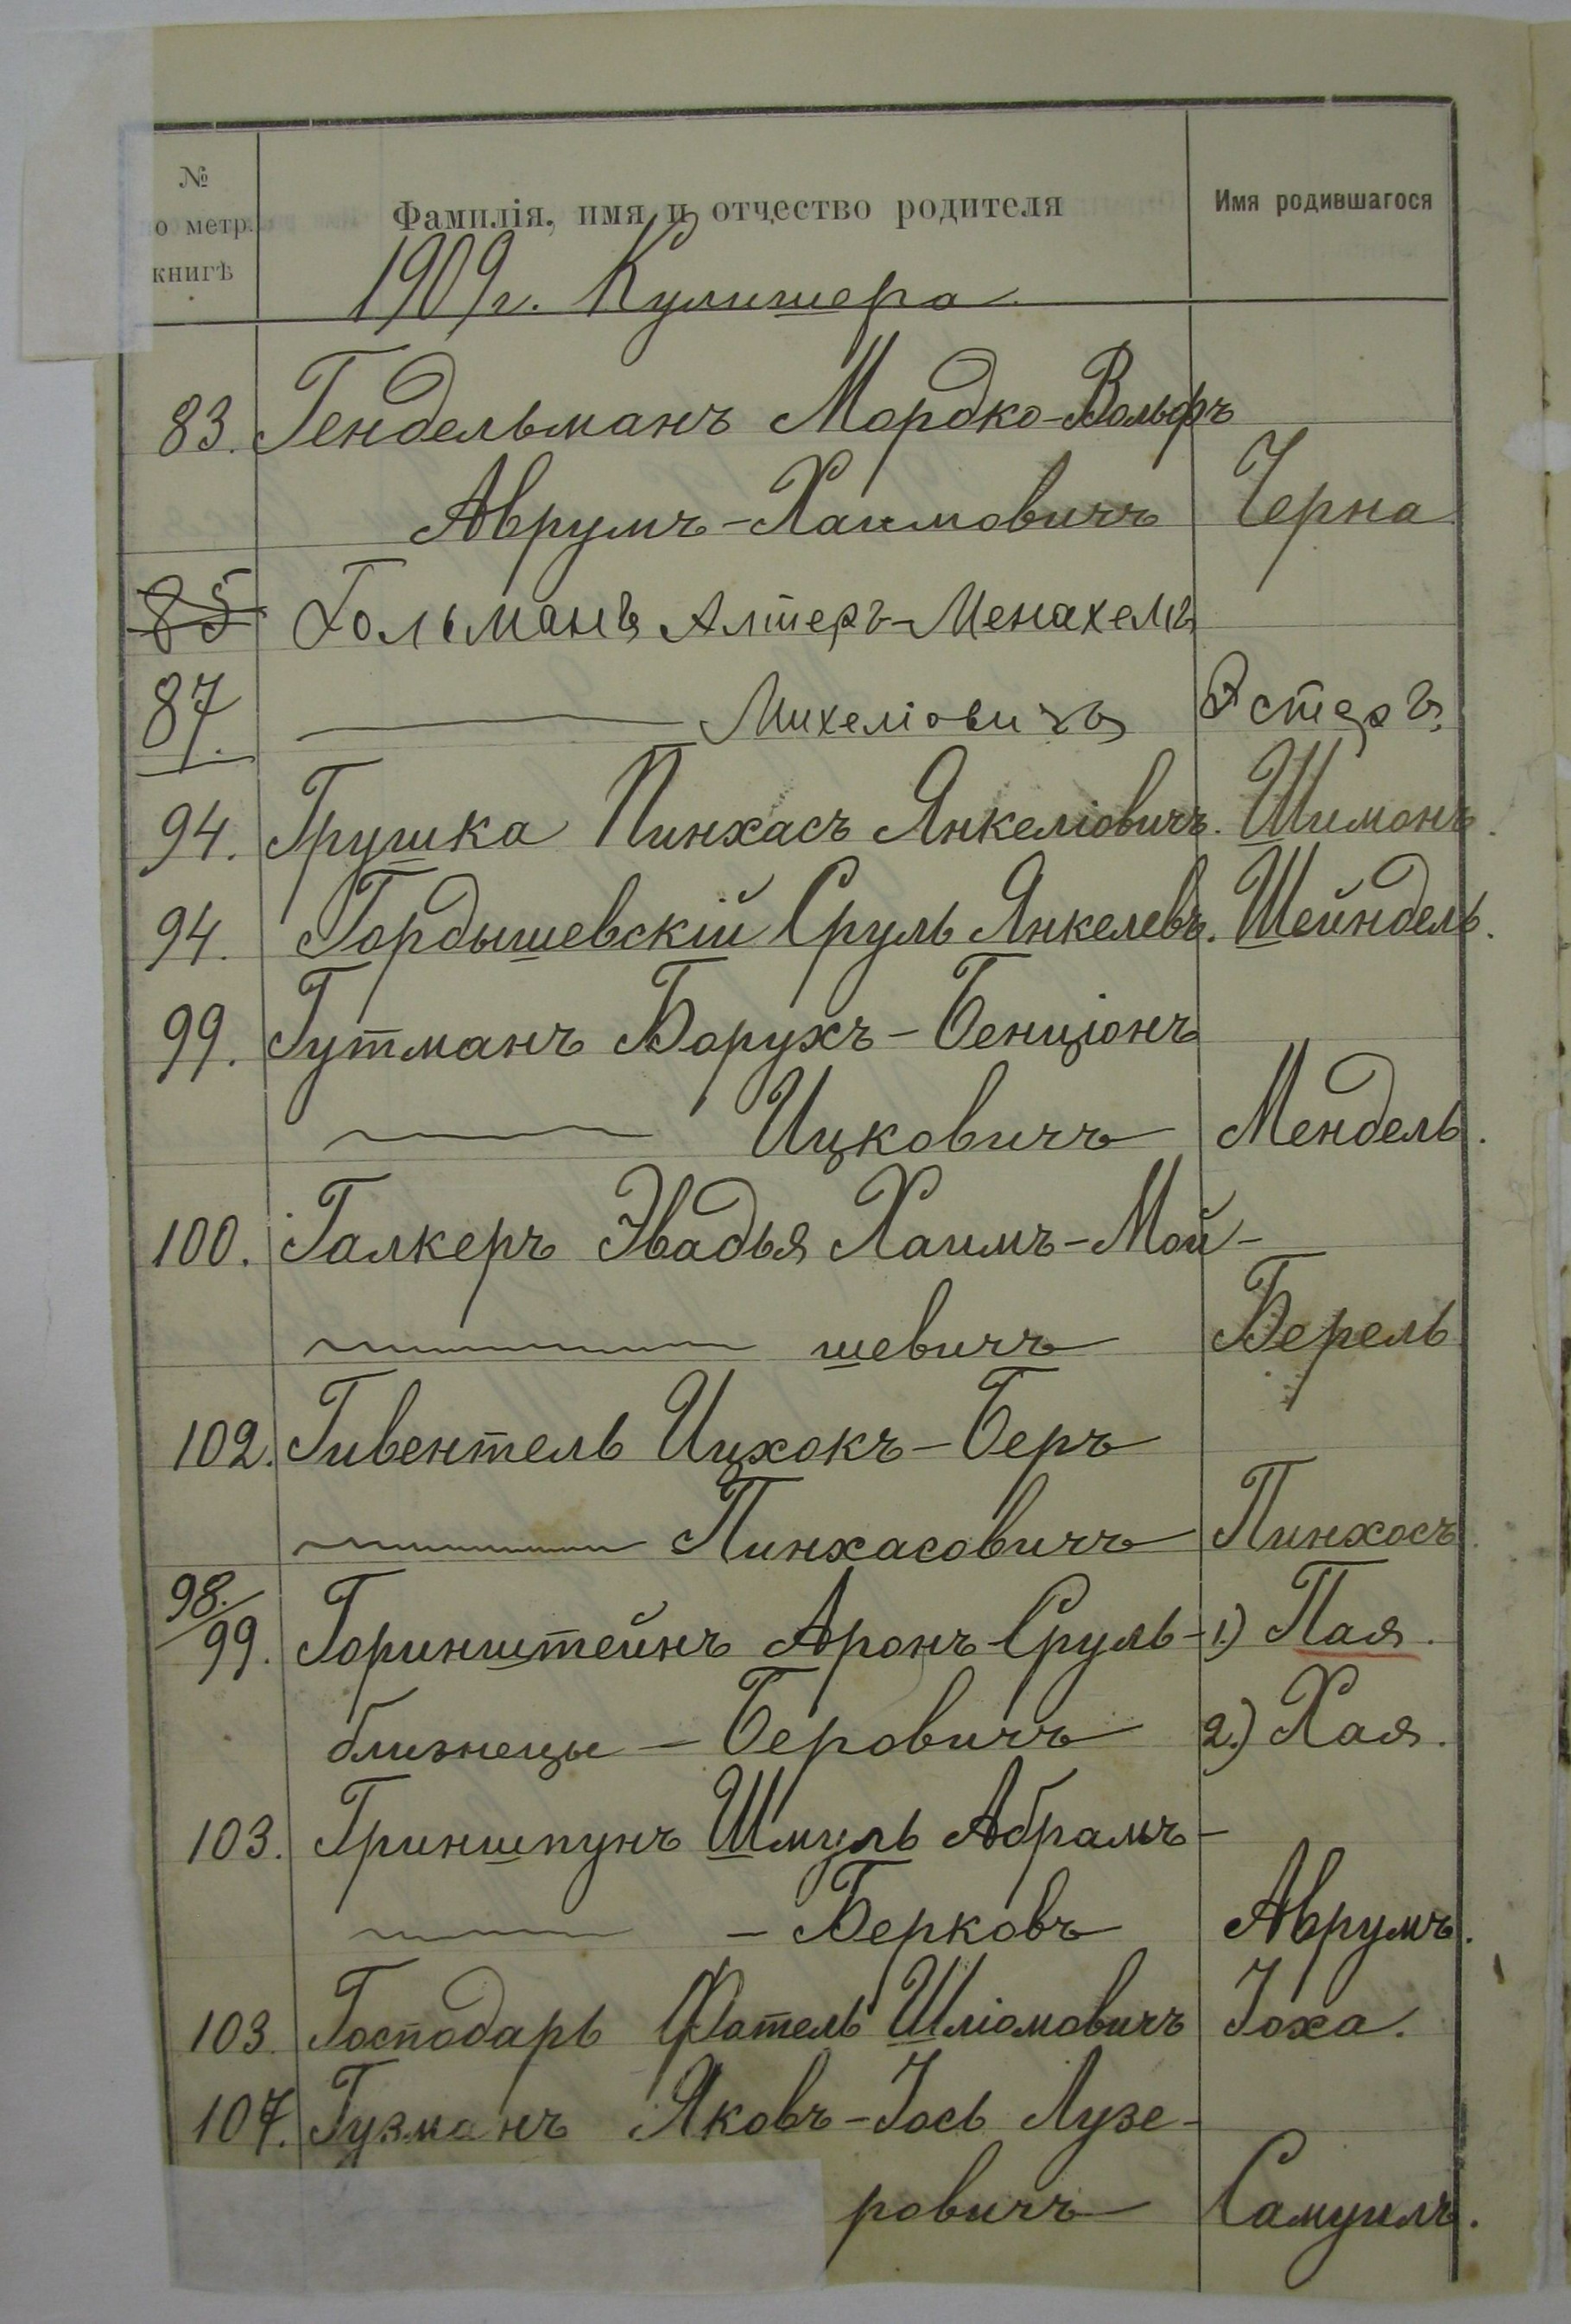 №
о метр.
книгѣ
Фамилія, имя и отчество родителя
Имя родившагося
1909 г. Кулишера
83. Гендельманъ Мордко-Вольфъ
Аврумъ-Хаимовичъ Черна
85 Гольманъ Алтеръ-Менахемъ
87. Михеліовичъ Эстеръ
94. Грушка Пинхасъ Янкеліовичъ. Шимонъ.
94. Гордышевскій Сруль Янкелевъ. Шейндель.
99. Гутманъ Борухъ-Бенціонъ
Ицковичъ Мендель.
100. Галкеръ Эвадья Хаимъ-Мой-
шевичъ Берель
102. Гивентель Ицхокъ-Беръ
Пинхасовичъ Пинхосъ
98./99. Горинштейнъ Аронъ-Сруль- 1.) Пая.
близнецы - Беровичъ 2.) Хая.
103. Гриншпунъ Шмуль Абрамъ-
- Берковъ Аврумъ.
103. Господарь Фотель Шліомовичъ Іоха.
107. Гузманъ Яковъ-Іось Лузе-
ровичъ Самуилъ.